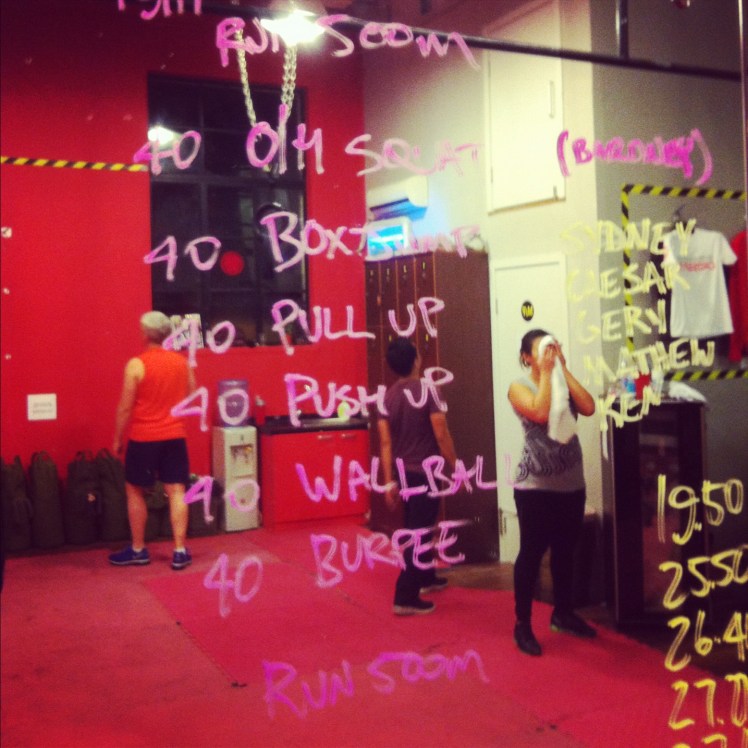 RUN 500m
40 O/H SQUAT (BURGNDY)
40 BOX JUMP
40 PULL UP
40 PUSH UP
40 WALLBALL
40 BURPEE
RUN 500m
SYDNEY
CAESAR
GERY
MATHEW
KEN
19.50
25.50